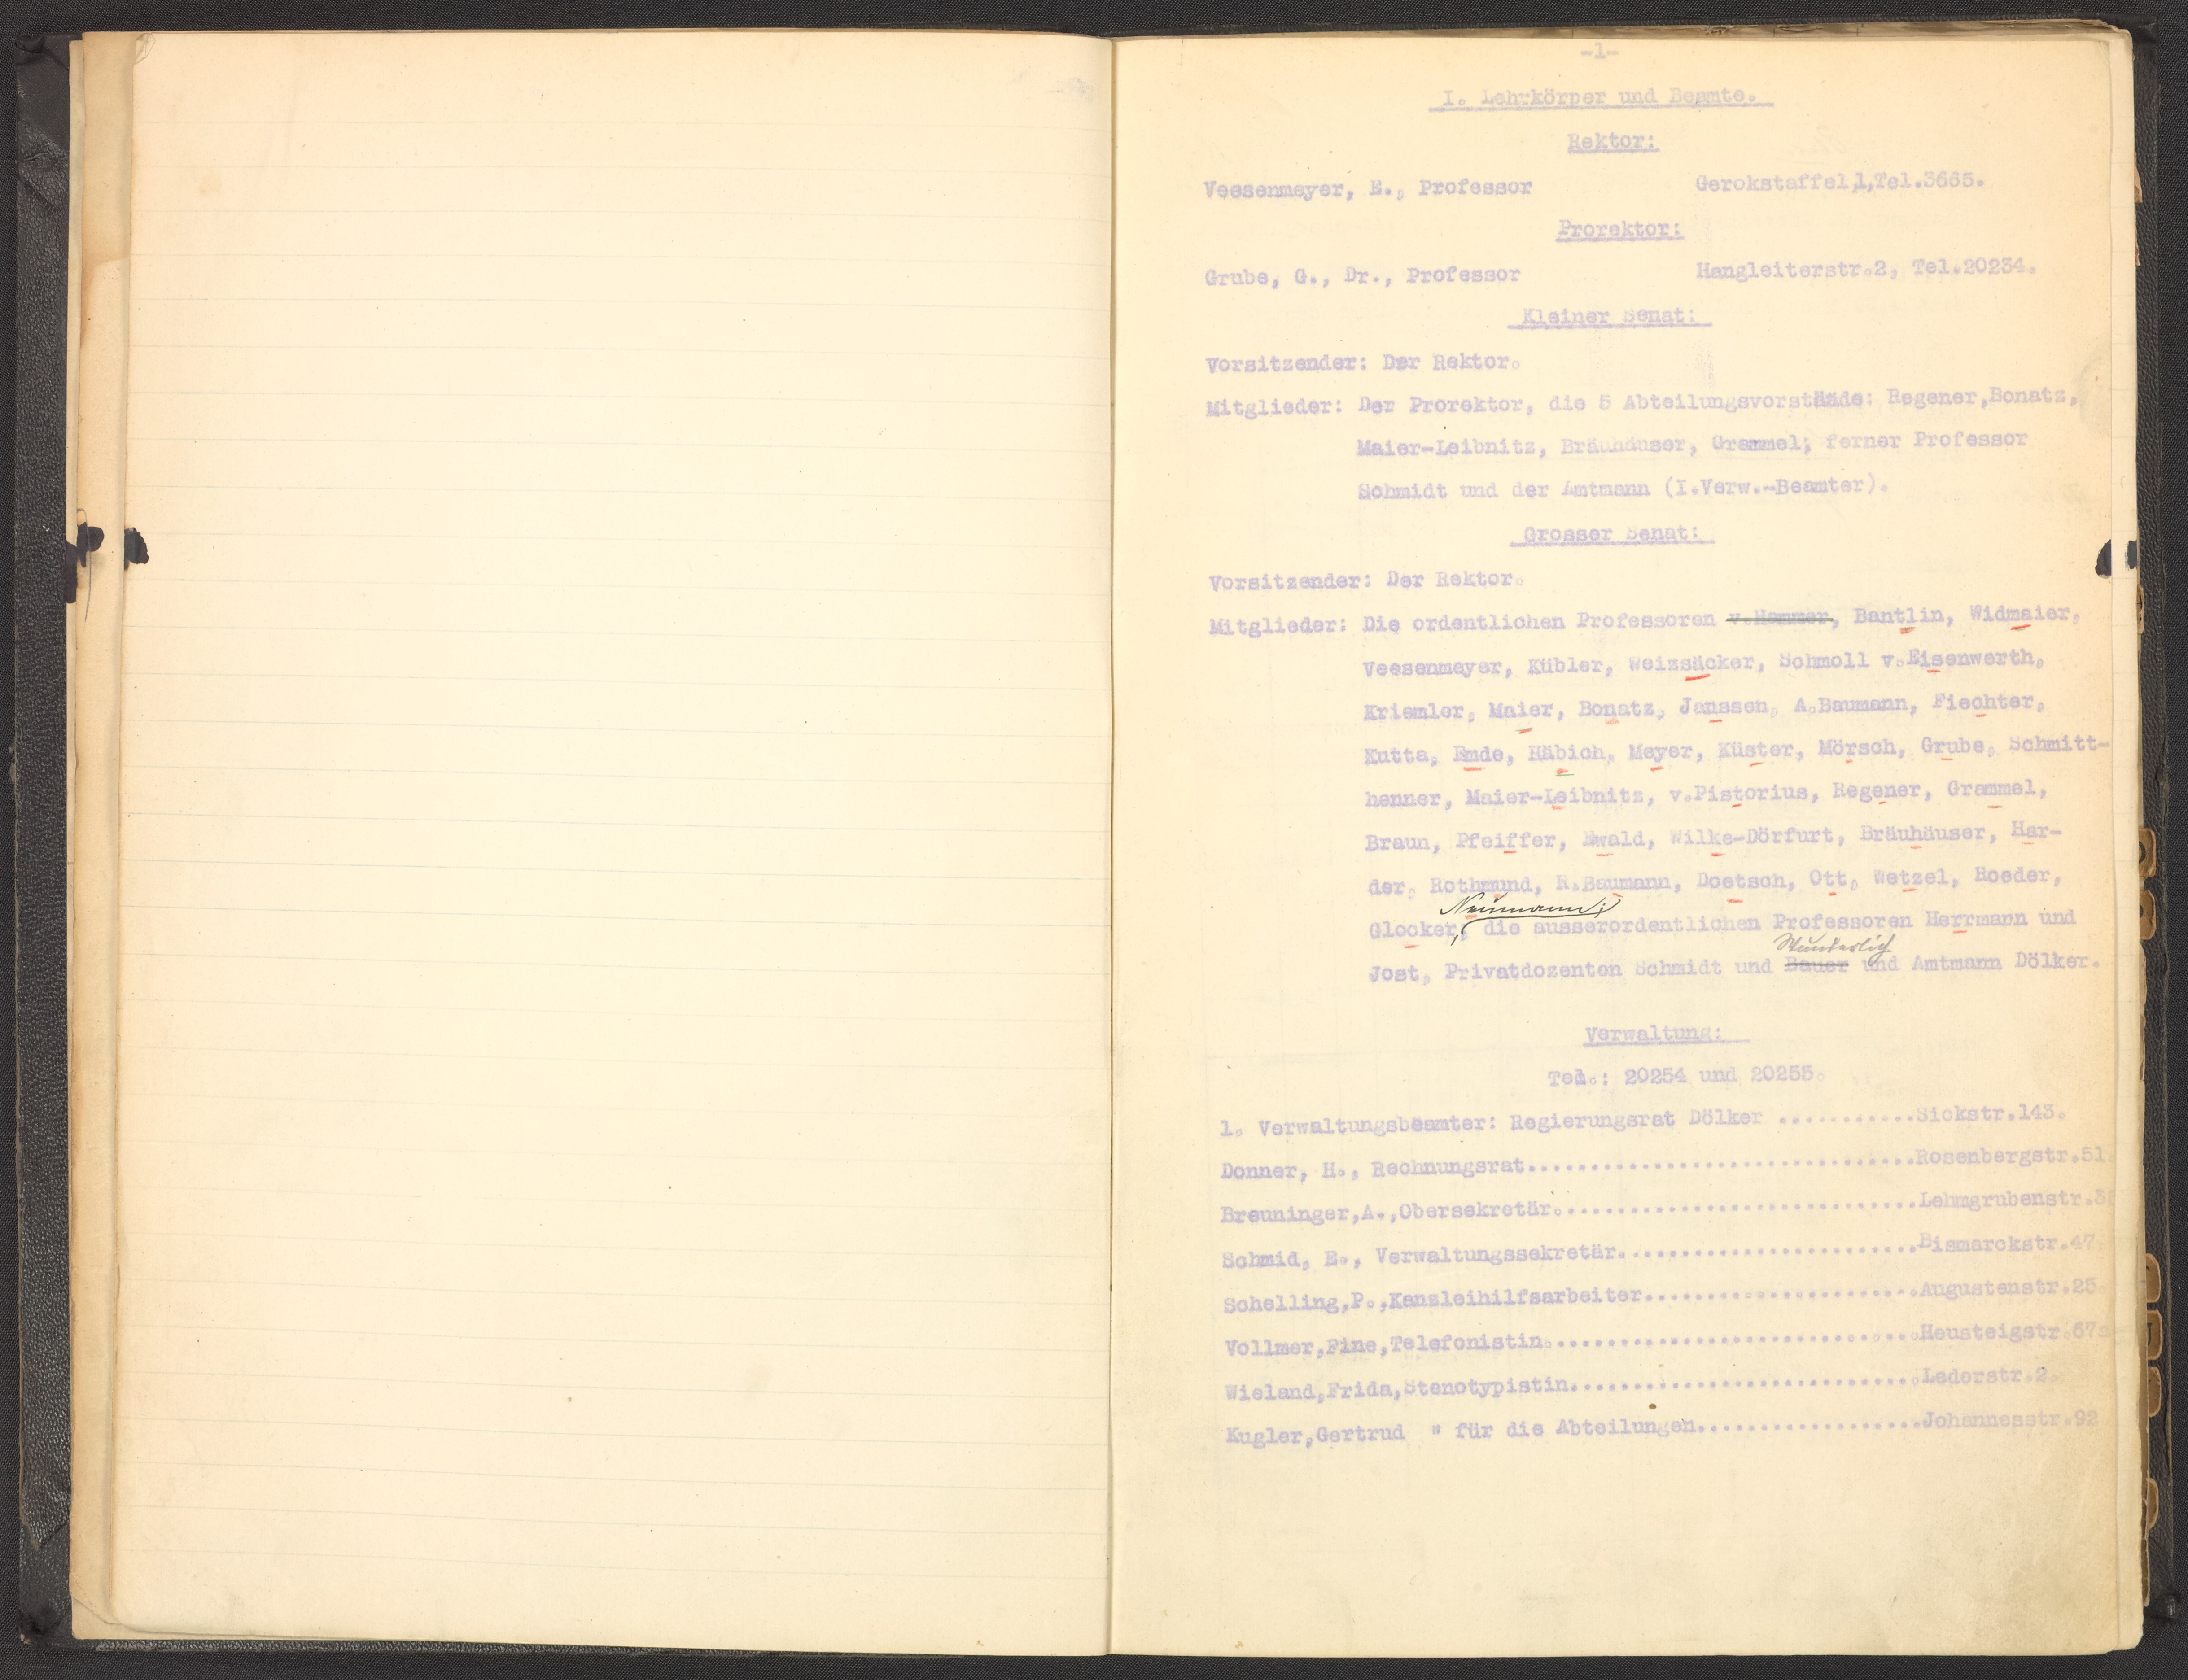 -1-
I. Lehrkörper und Beamte.
Rektor:
Veesenmeyer, E., Professor Gerokstaffel,1,Tel.3665.
Prorektor:
Grube, G., Dr., Professor Hangleiterstr.2, Tel.20234.
Kleiner Senat:
Vorsitzender: Der Rektor.
Mitglieder: Der Prorektor, die 5 Abteilungsvorstände: Regener,Bonatz,
Maier-Leibnitz, Bräuhäuser, Grammel; ferner Professor
Schmidt und der Amtmann (I.Verw.-Beamter).
Grosser Senat:
Vorsitzender: Der Rektor.
Mitglieder: Die ordentlichen Professoren v.Hemmer, Bantlin, Widmaier,
Veesenmeyer, Kübler, Weizsäcker, Schmoll v.Eisenwerth,
Kriemler, Maier, Bonatz, Janssen, A.Baumann, Fiechter,
Kutta, Emde, Häbich, Meyer, Küster, Mörsch, Grube, Schmitt-
henner, Maier-Leibnitz, v.Pistorius, Regener, Grammel,
Braun, Pfeiffer, Ewald, Wilke-Dörfurt, Bräuhäuser, Har-
der, Rothmund, R.Baumann, Doetsch, Ott, Wetzel, Roeder,
Neumann;
Glocker, die ausserordentlichen Professoren Herrmann und
Wunderlich
Jost, Privatdozenten Schmidt und Bauer und Amtmann Dölker.
Verwaltung:
Tel.: 20254 und 20255.
1. Verwaltungsbeamter: Regierungsrat Dölker ...........Sickstr.143.
Donner, H., Rechnungsrat...............................Rosenbergstr.51
Breuninger,A.,Obersekretär.............................Lehmgrubenstr.3
Schmid, E., Verwaltungssekretär........................Bismarckstr.47.
Schelling,P.,Kanzleihilfsarbeiter......................Augustenstr.25.
Vollmer,Fine,Telefonistin..............................Heusteigstr.67a
Wieland,Frida,Stenotypistin............................Lederstr.2.
Kugler,Gertrud " für die Abteilungen..................Johannesstr.92